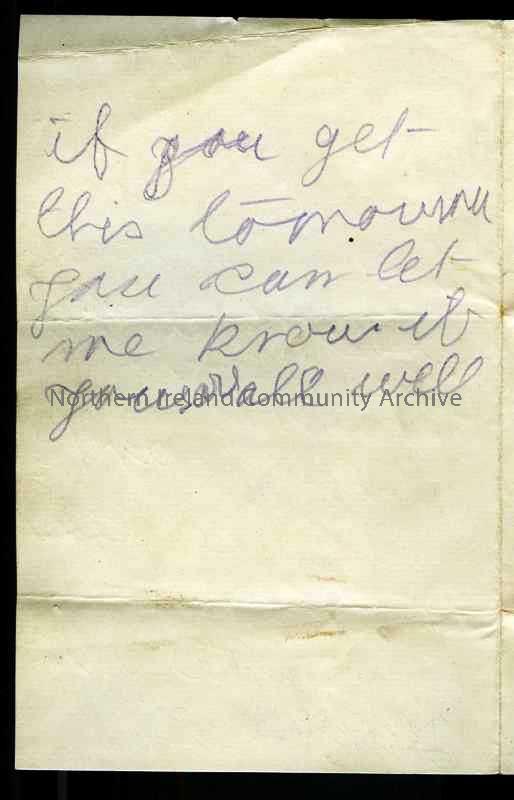 if you get
this tomourow
you can let
me know if
your all well
Northern Ireland Community Archive